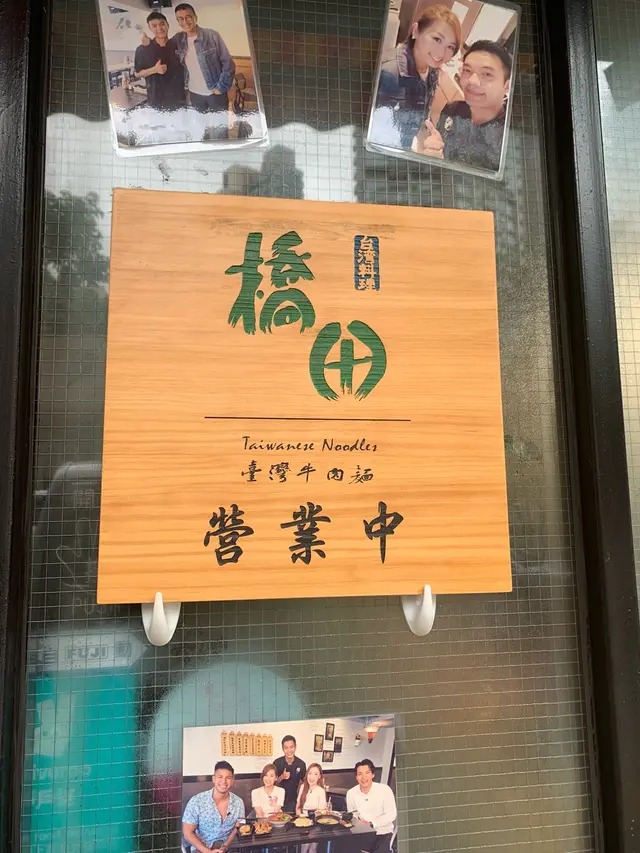 橋田
台灣料理
Taiwanese Noodles
臺灣牛肉麵
營業中
FUJI